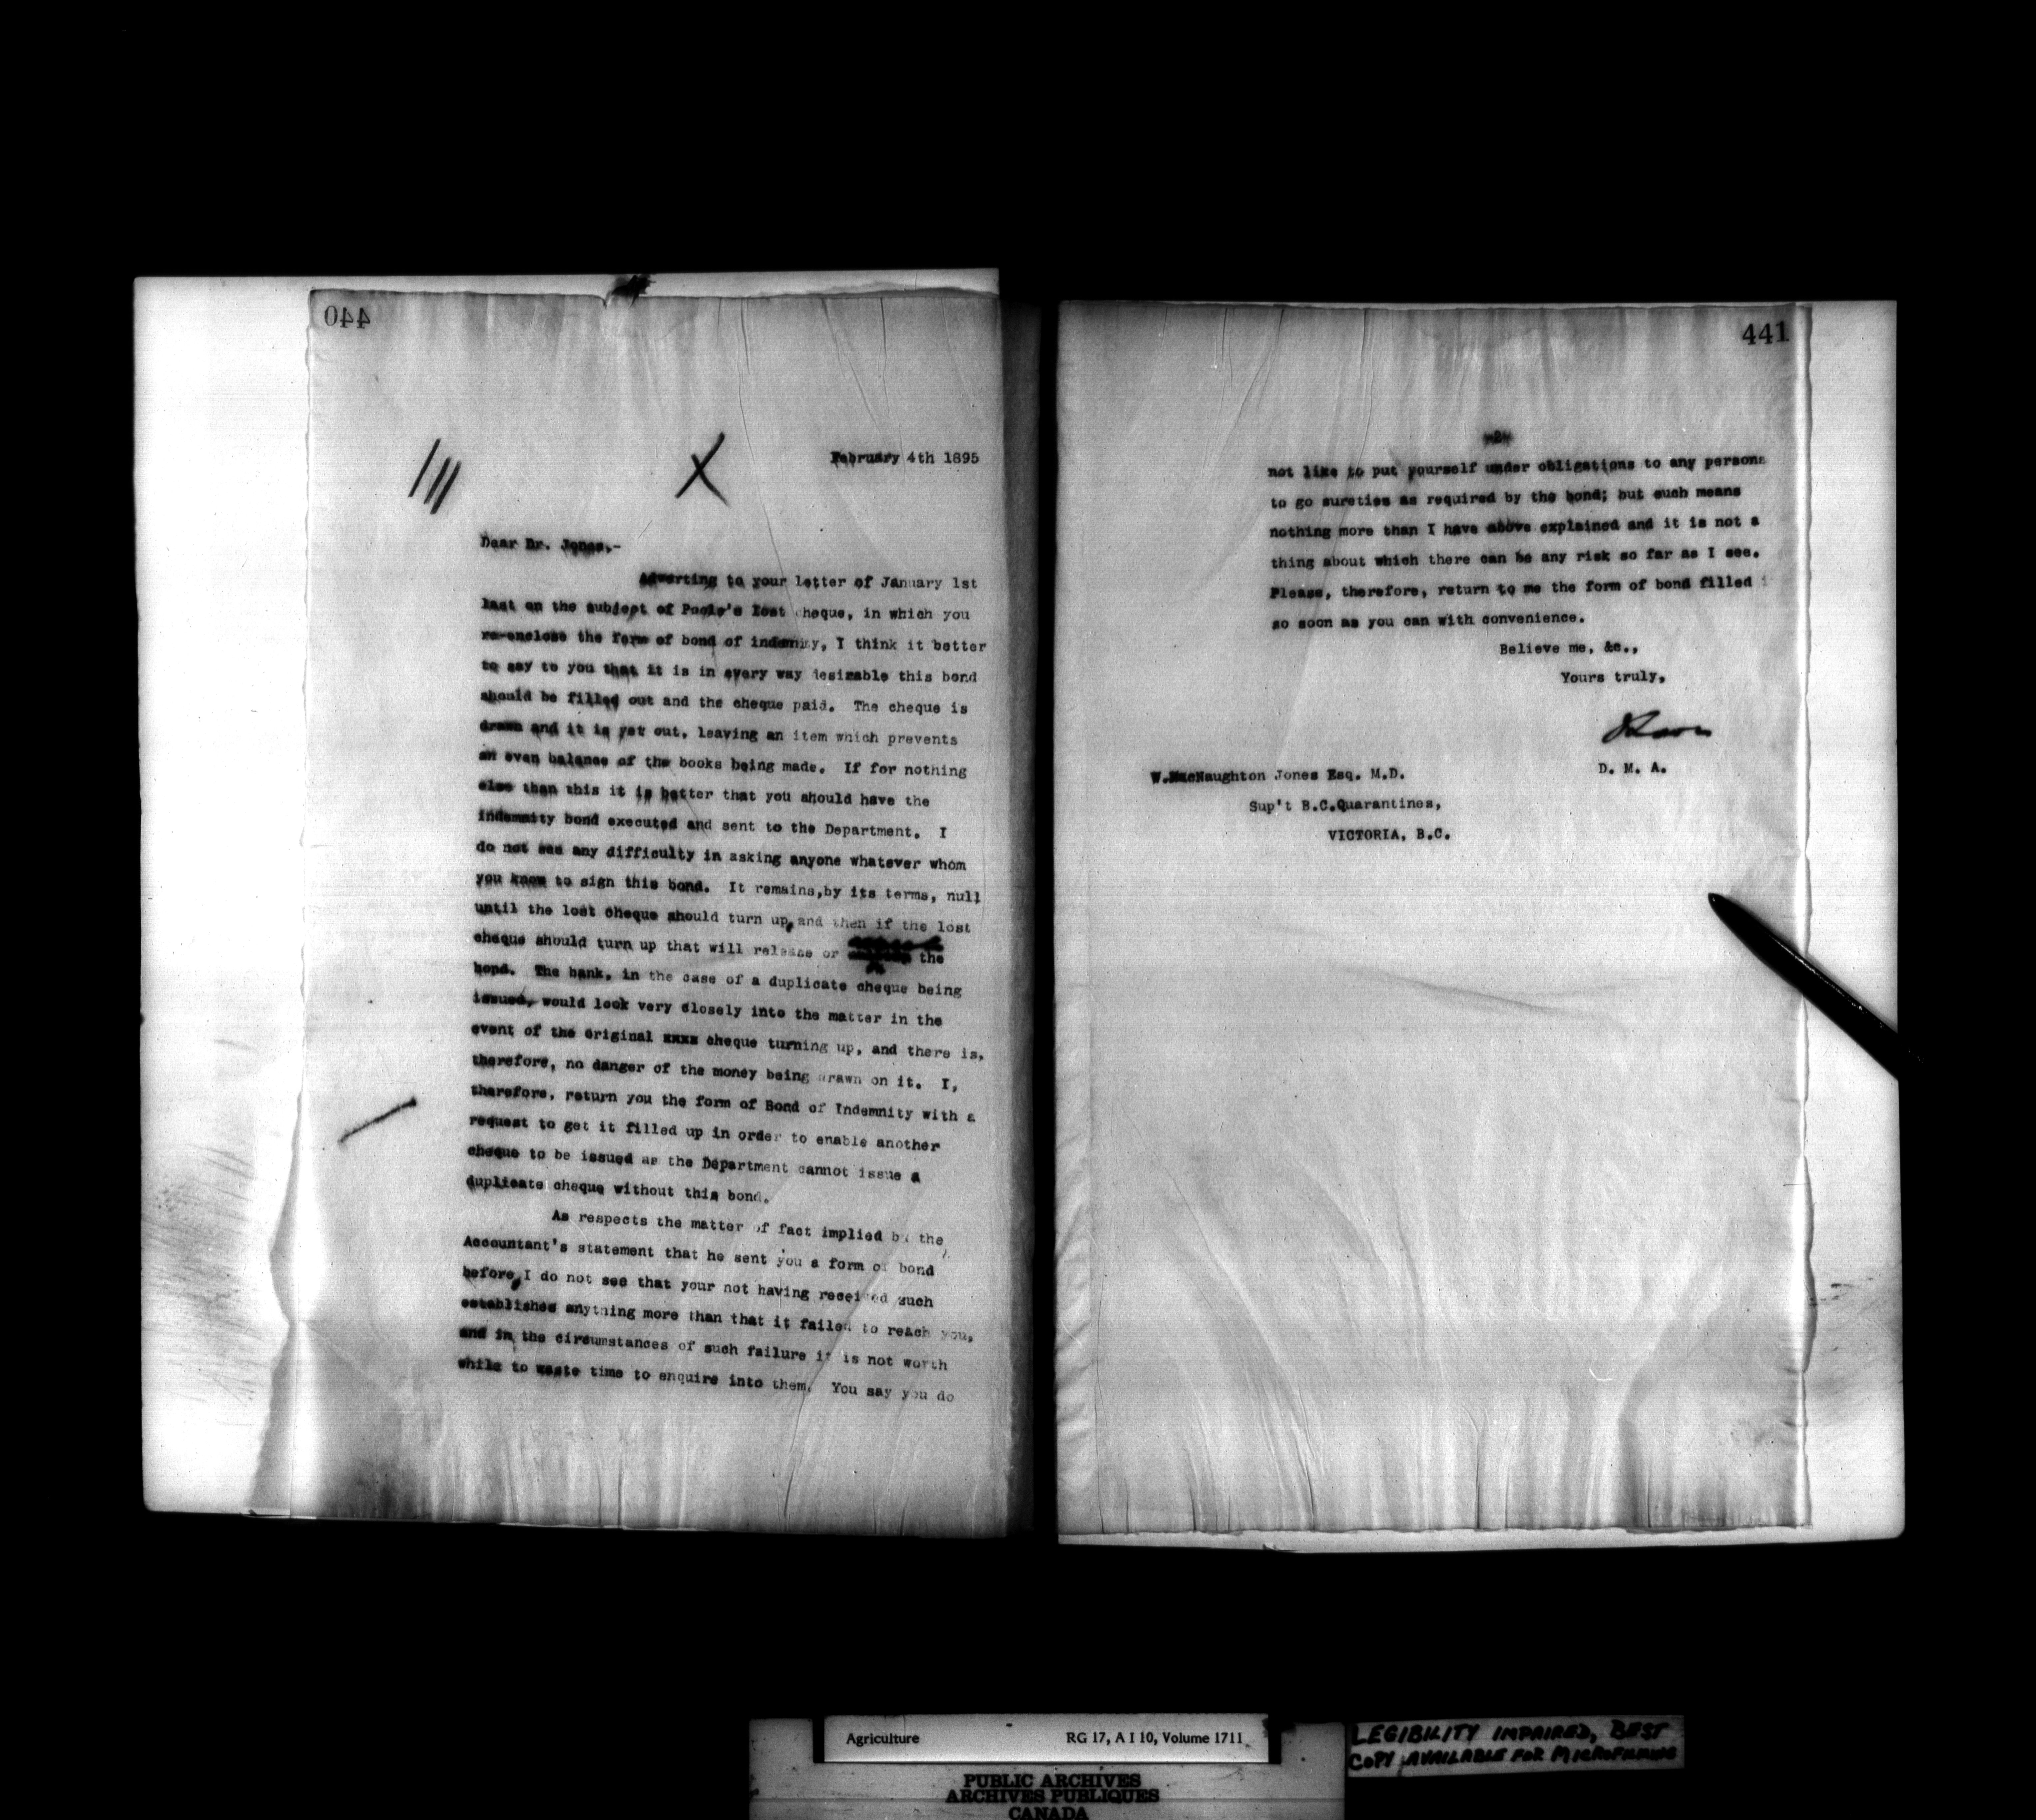 440
February 4th 1895
Dear Dr. Jones,-
Adverting to your letter of January 1st
last on the subject of Poole's lost cheque, in which you
re-enclose the form of bond of indemnity, I think it better
to say to you that it is in every way desirable this bond
should be filled out and the cheque paid. The cheque is
drawn and it is yet out, leaving an item which prevents
an even balance of the books being made. If for nothing
else than this it is better that you should have the
indemnity bond executed and sent to the Department. I
do not see any difficulty in asking anyone whatever whom
you know to sign this bond. It remains,by its terms, null
until the lost cheque should turn up, and then if the lost
cheque should turn up that will release or the
bond. The bank, in the case of a duplicate cheque being
issued, would look very closely into the matter in the
event of the original xxxx cheque turning up, and there is,
therefore, no danger of the money being drawn on it. I,
therefore, return you the form of Bond of Indemnity with a
request to get it filled up in order to enable another
cheque to be issued as the Department cannot issue a
duplicate cheque without this bond.
As respects the matter of fact implied by the
Accountant's statement that he sent you a form of bond
before, I do not see that your not having received such
establishes anything more than that it failed to reach you,
and in the circumstances of such failure it is not worth
while to waste time to enquire into them. You say you do
441
-2-
not like to put yourself under obligations to any persons
to go sureties as required by the bond; but such means
nothing more than I have above explained and it is not a
thing about which there can be any risk so far as I see.
Please, therefore, return to me the form of bond filled
so soon as you can with convenience.
Believe me, &c.,
Yours truly,
D. M. A.
W.MacNaughton Jones Esq. M.D.
Sup't B.C.Quarantines,
VICTORIA, B.C.
Agriculture RG 17, A I 10, Volume 1711
LEGIBILITY IMPAIRED, BEST
COPY AVAILABLE FOR MICROFILMING
PUBLIC ARCHIVES
ARCHIVES PUBLIQUES
CANADA